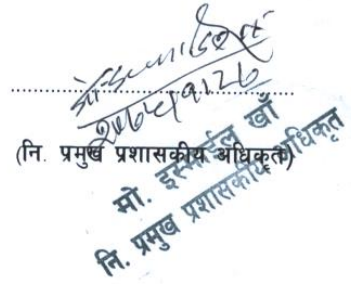 २०७५।१।२७
(नि. प्रमुख प्रशासकीय अधिकृत)
मो. इस्माईल खाँ
नि. प्रमुख प्रशासकीय अधिकृत